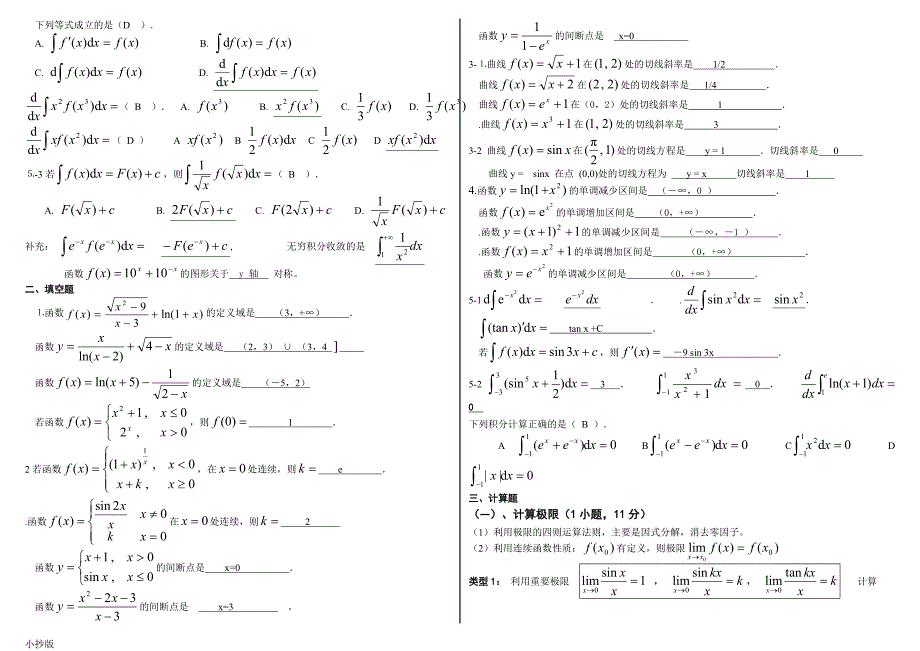 下列等式成立的是（D ）.
A. ∫f′(x)dx = f(x)　B. ∫df(x) = f(x)
C. d∫f(x)dx = f(x)　D. d/dx ∫f(x)dx = f(x)
d/dx ∫x²f(x³)dx =（ B ）. A. f(x³)　B. x²f(x³)　C. 1/3 f(x)　D. 1/3 f(x³)
d/dx ∫xf(x²)dx =（ D ）　A xf(x²)　B 1/2 f(x)dx　C 1/2 f(x)　D xf(x²)dx
5.-3 若∫f(x)dx = F(x)+c，则∫1/√x f(√x)dx =（ B ）.
A. F(√x)+c　B. 2F(√x)+c　C. F(2√x)+c　D. 1/√x F(√x)+c
补充：∫e⁻ˣf(e⁻ˣ)dx = −F(e⁻ˣ)+c，　无穷积分收敛的是 ∫₁^{+∞} 1/x² dx
函数 f(x)=10ˣ+10⁻ˣ 的图形关于 y 轴 对称。
二、填空题
1.函数 f(x) = √(x²−9)/(x−3) + ln(1+x) 的定义域是 （3，+∞） .
函数 y = x/ln(x−2) + √(4−x) 的定义域是 （2，3）∪（3，4 ］
函数 f(x) = ln(x+5) − 1/√(2−x) 的定义域是 （－5，2）
若函数 f(x) = { x²+1， x≤0 ； 2ˣ， x>0 ，则 f(0) = 1 .
2若函数 f(x) = { (1+x)^{1/x}， x<0 ； x+k， x≥0 ，在 x=0 处连续，则 k= e .
.函数 f(x) = { sin 2x/x　x≠0 ； k　x=0 在 x=0 处连续，则 k= 2
函数 y = { x+1， x>0 ； sin x， x≤0 的间断点是 x=0 .
函数 y = (x²−2x−3)/(x−3) 的间断点是 x=3 。
小抄版
函数 y = 1/(1−eˣ) 的间断点是 x=0
3- 1.曲线 f(x)=√x+1 在 (1, 2) 处的切线斜率是 1/2 .
曲线 f(x)=√(x+2) 在 (2, 2) 处的切线斜率是 1/4
曲线 f(x)=eˣ+1 在（0，2）处的切线斜率是 1 .
.曲线 f(x)=x³+1 在 (1, 2) 处的切线斜率是 3 .
3-2 曲线 f(x)=sin x 在 (π/2, 1) 处的切线方程是 y = 1 . 切线斜率是 0
曲线 y = sinx 在点 (0,0)处的切线方程为 y = x 切线斜率是 1
4.函数 y=ln(1+x²) 的单调减少区间是 （－∞，0 ） .
函数 f(x)=e^{x²} 的单调增加区间是 （0，+∞） .
.函数 y=(x+1)²+1 的单调减少区间是 （－∞，－1 ） .
.函数 f(x)=x²+1 的单调增加区间是 （0，+∞） .
函数 y=e^{−x²} 的单调减少区间是 （0，+∞） .
5-1 d∫e^{−x²}dx = e^{−x²}dx .　. d/dx ∫sin x²dx = sin x² .
∫(tan x)′dx = tan x +C .
若 ∫f(x)dx = sin 3x + c，则 f′(x) = －9 sin 3x .
5-2 ∫₋₃³(sin⁵x + 1/2)dx = 3 .　∫₋₁¹ x³/(x²+1) dx = 0 .　d/dx ∫₁ᵉ ln(x+1)dx =
0
下列积分计算正确的是（ B ）.
A ∫₋₁¹(eˣ+e⁻ˣ)dx=0　B ∫₋₁¹(eˣ−e⁻ˣ)dx=0　C ∫₋₁¹x²dx=0　D
∫₋₁¹|x|dx=0
三、计算题
（一）、计算极限（1小题，11分）
（1）利用极限的四则运算法则，主要是因式分解，消去零因子。
（2）利用连续函数性质：f(x₀)有定义，则极限 lim_{x→x₀} f(x) = f(x₀)
类型1： 利用重要极限 lim_{x→0} sin x/x = 1 ， lim_{x→0} sin kx/x = k ， lim_{x→0} tan kx/x = k 计算